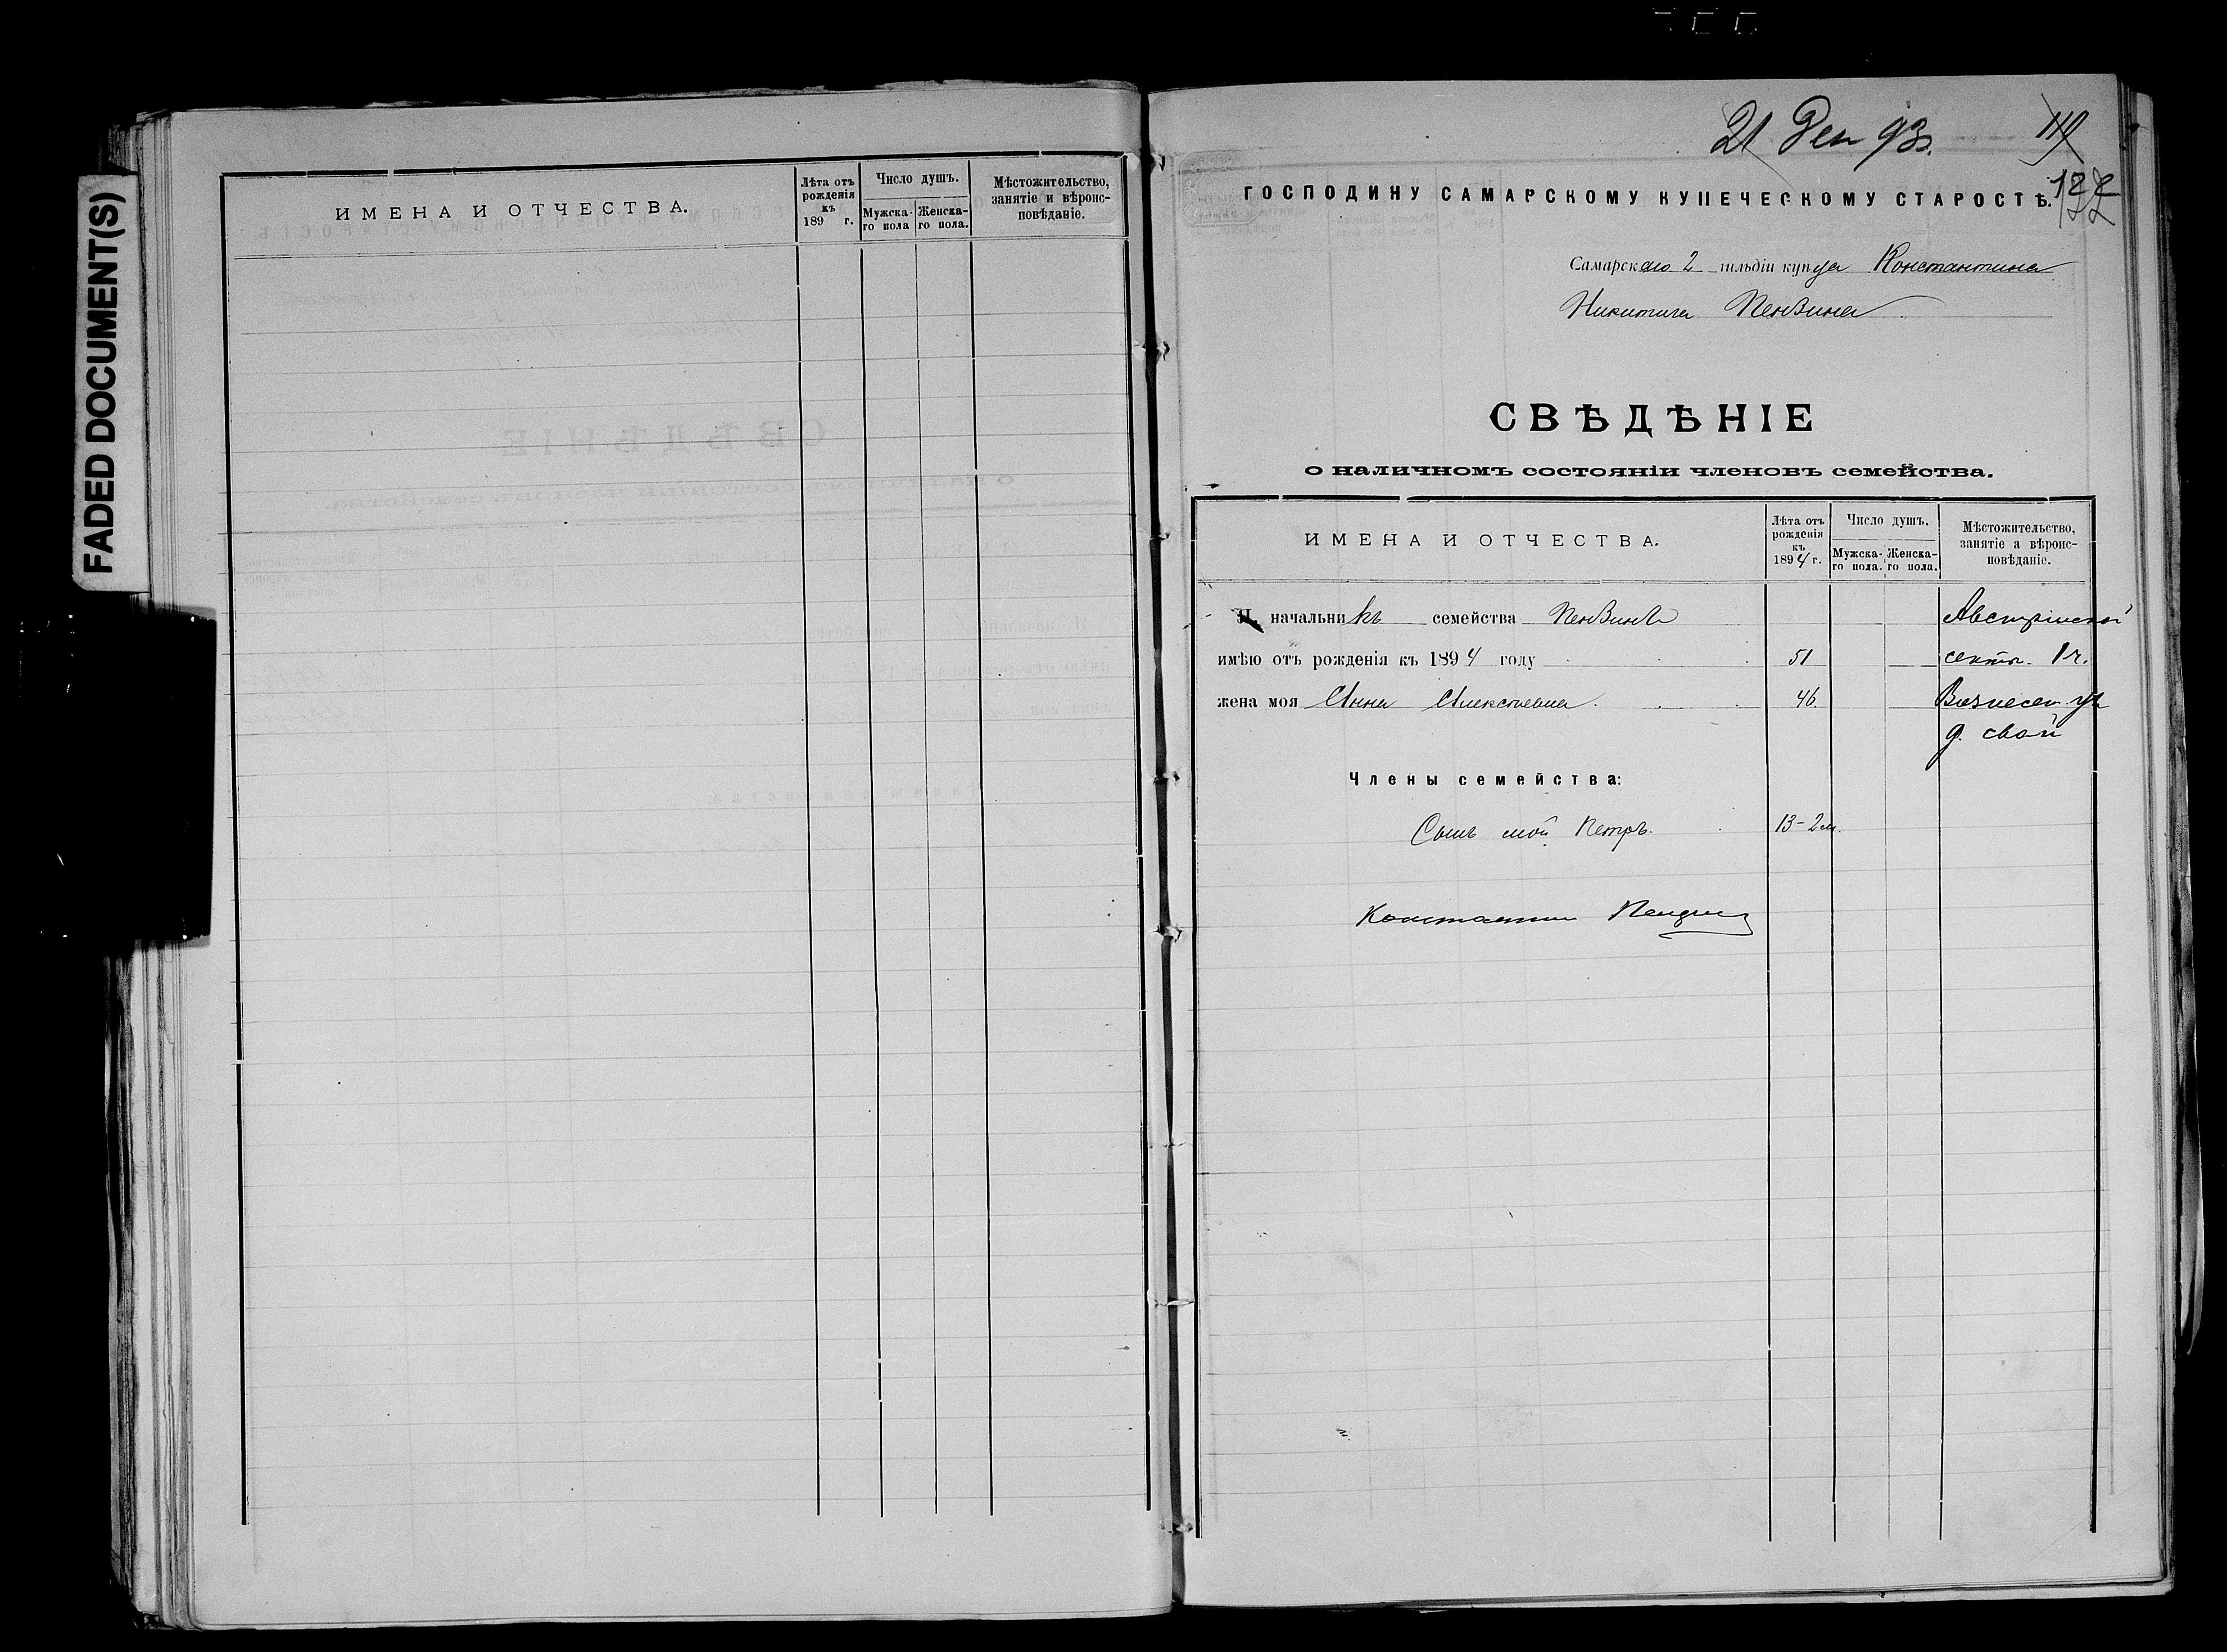 FADED DOCUMENT(S)
ИМЕНА И ОТЧЕСТВА.
Лѣта отъ рожденія къ 189 г.
Число душъ.
Мужска-го пола
Женска-го пола.
Мѣстожительство, занятіе и вѣроис-повѣданіе.
21 Дек 93.
ГОСПОДИНУ САМАРСКОМУ КУПЕЧЕСКОМУ СТАРОСТѢ.
Самарскаго 2 гильдіи купца Константина
Никитича Пензина
СВѢДѢНІЕ
о наличномъ состояніи членовъ семейства.
ИМЕНА И ОТЧЕСТВА.
Лѣта отъ рожденія къ 1894 г.
Число душъ.
Мужска-го пола.
Женска-го пола.
Мѣстожительство, занятіе а вѣроис-повѣданіе.
Я, начальникъ семейства Пензинъ Австрійской
имѣю отъ рожденія къ 1894 году 51 секты. 1 ч.
жена моя Анна Алексѣевна. 46. Вознесен ул
д. свой
Члены семейства:
Сынъ мой Петръ. 13-2 м.
Константин Пензин